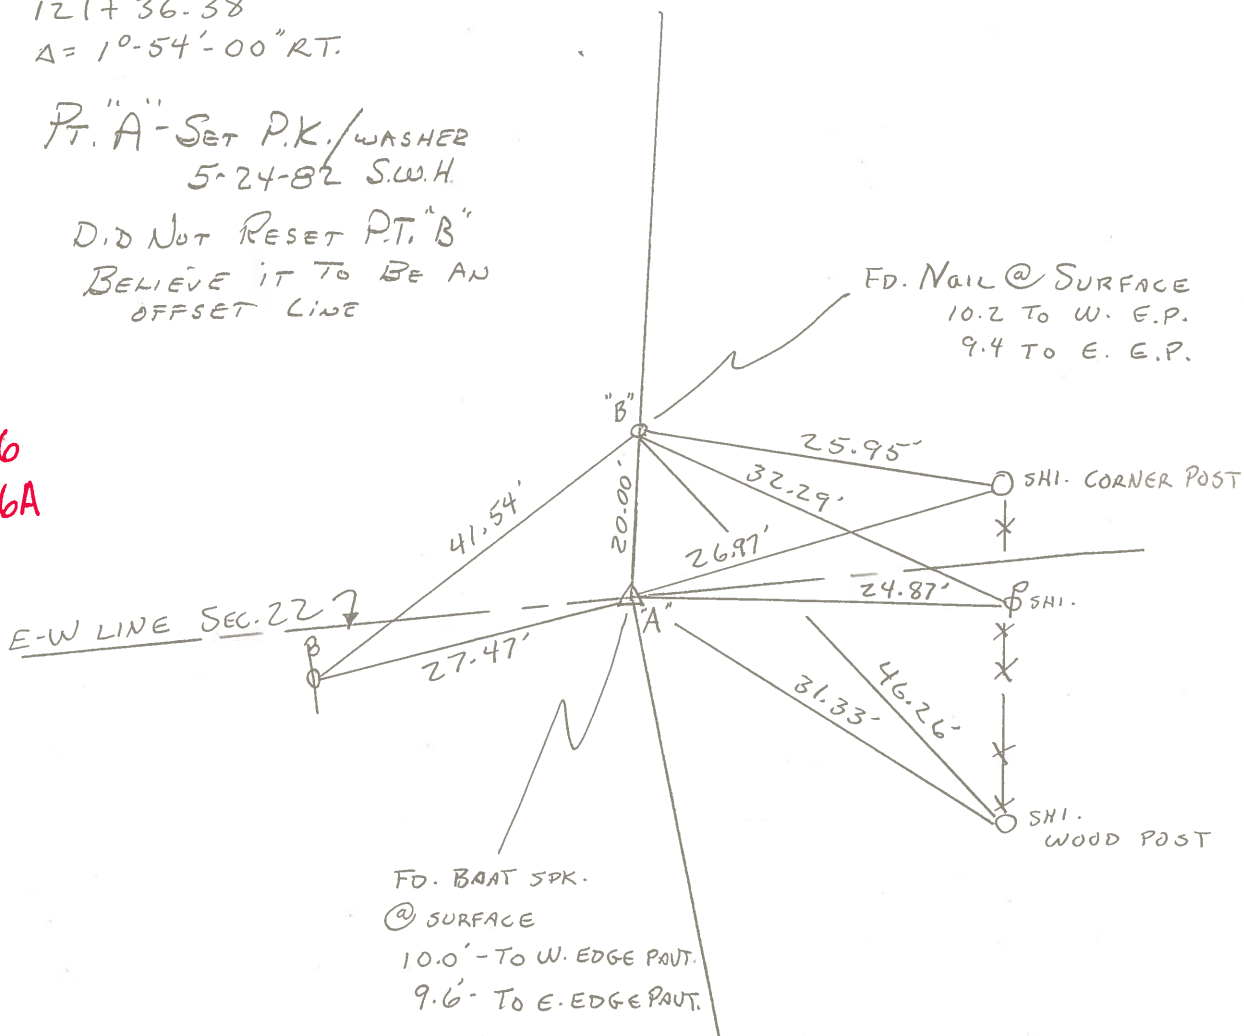 121+36.38
Δ= 1°-54'-00" RT.
PT. "A" - SET P.K./WASHER
5-24-82 S.W.H.
DID NOT RESET PT. "B"
BELIEVE IT TO BE AN
OFFSET LINE
FD. NAIL @ SURFACE
10.2 TO W. E.P.
9.4 TO E. E.P.
"B"
25.95'
32.29'
SHI. CORNER POST
6
6A
41.54'
20.00'
26.97'
24.87'
SHI.
E-W LINE SEC. 22
"A"
27.47'
31.33'
46.26'
SHI.
WOOD POST
FD. BOAT SPK.
@ SURFACE
10.0' - TO W. EDGE PAVT.
9.6' - TO E. EDGE PAVT.